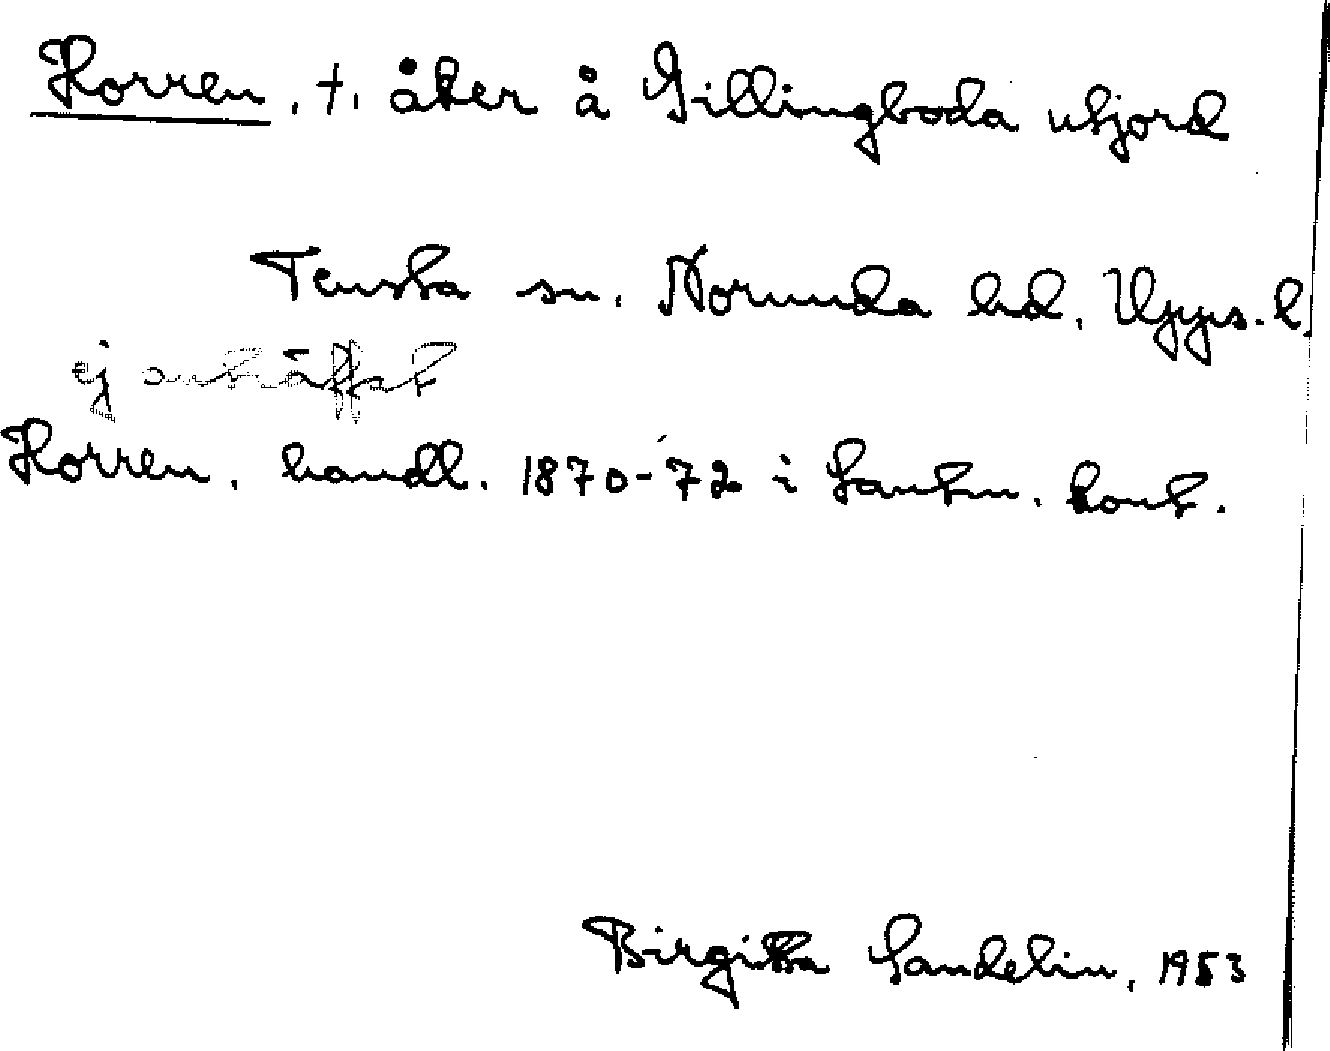 Horren, †. åker å Gillingboda utjord
Tensta sn. Norunda hd. Upps. l.
ej anträffat
Horren, handl. 1870-72 i Lantm. kont.
Birgitta Sandelin, 1953